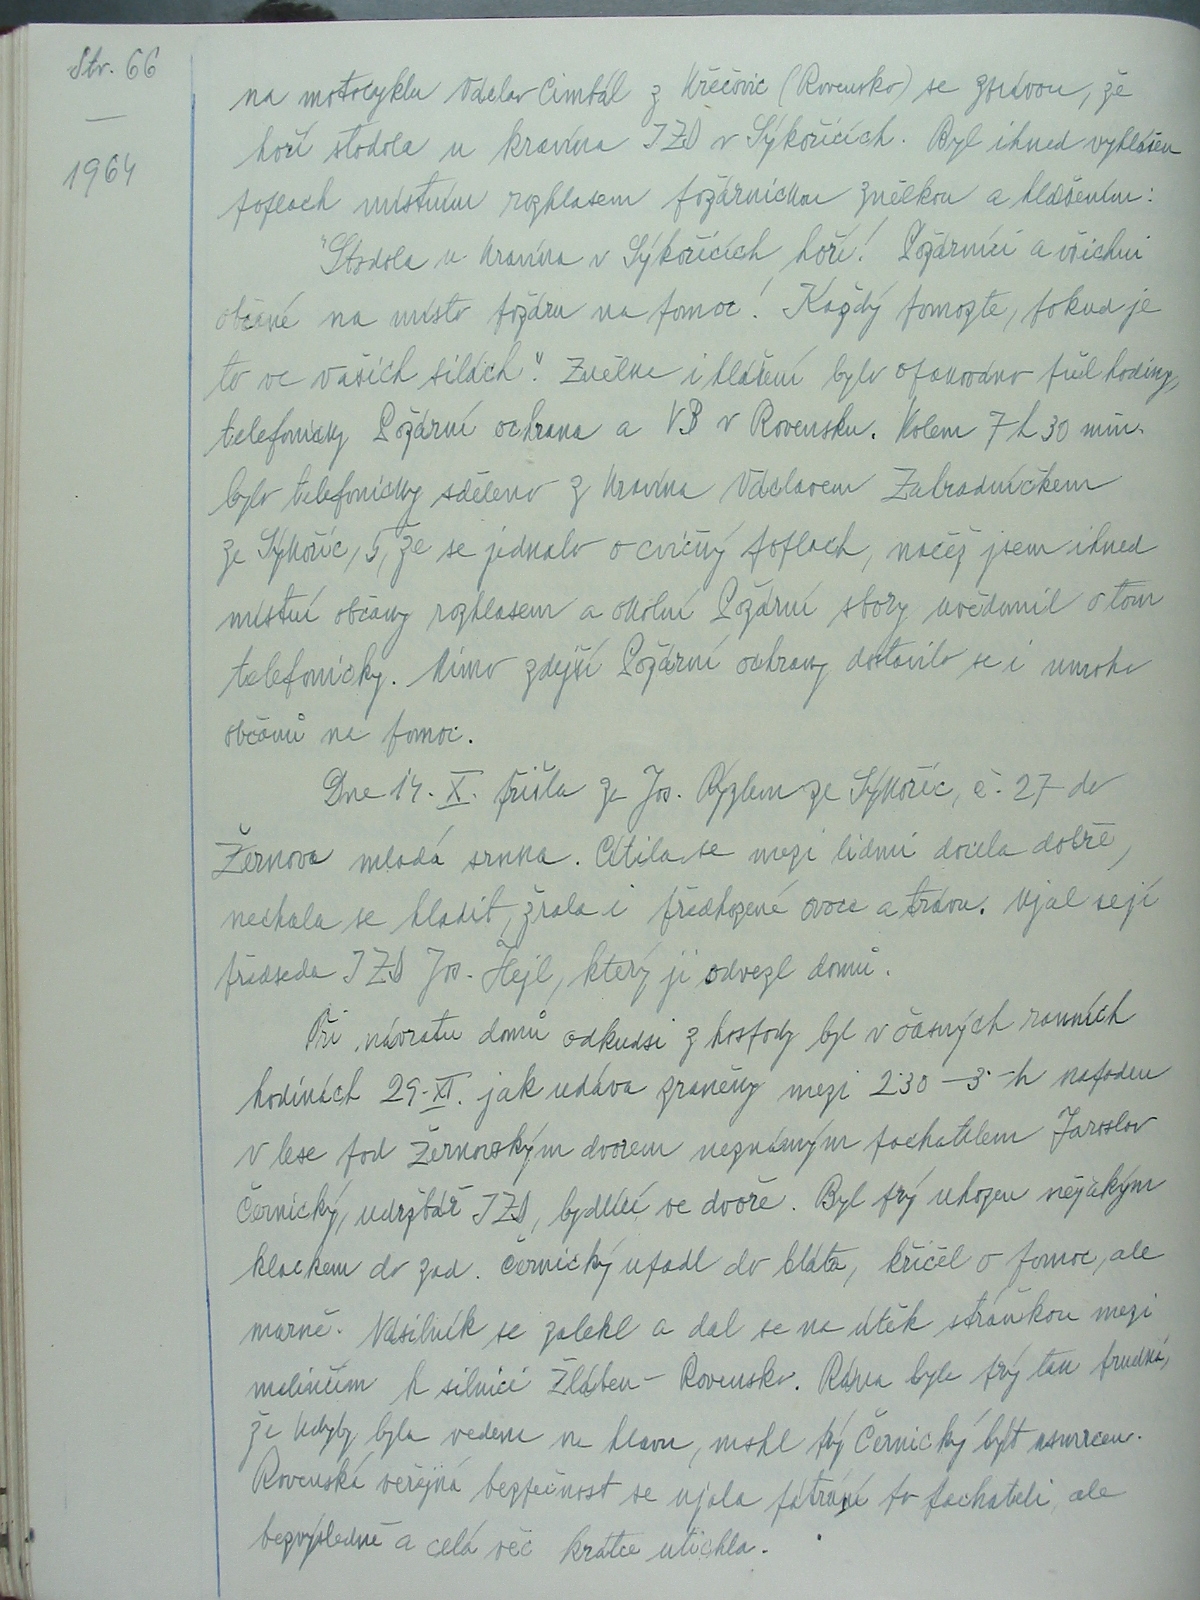 Str. 66
—
1964
na motocyklu Václav Cimbál z Křečovic (Rovensko) se zprávou, že
hoří stodola u kravína JZD v Sýkořicích. Byl ihned vyhlášen
poplach místním rozhlasem požárnickou znělkou a hlášením:
"Stodola u kravína v Sýkořicích hoří! Požárníci a všichni
občané na místo požáru na pomoc! Každý pomozte, pokud je
to ve vašich silách". Znělka i hlášení bylo opakováno půl hodiny,
telefonicky Požární ochrana a VB v Rovensku. Kolem 7 h 30 min.
bylo telefonicky sděleno z kravína Václavem Zahradníčkem
ze Sýkořic, 5, že se jednalo o cvičný poplach, načež jsem ihned
místní občany rozhlasem a okolní Požární sbory uvědomil o tom
telefonicky. Mimo zdejší Požární ochrany dostavilo se i mnoho
občanů na pomoc.
Dne 14. X. přišla za Jos. Rýzlem ze Sýkořic, č. 27 do
Žernova mladá srnka. Cítila se mezi lidmi docela dobře,
nechala se hladit, žrala i předhozené ovoce a trávu. Ujal se jí
předseda JZD Jos. Hejl, který ji odvezl domů.
Při návratu domů odkudsi z hospody byl v časných ranních
hodinách 29. XI. jak udává zraněný mezi 2.30 – 3 h napaden
v lese pod Žernovským dvorem neznámým pachatelem Jaroslav
Černický, údržbář JZD, bydlící ve dvoře. Byl prý uhozen nějakým
klackem do zad. Černický upadl do bláta, křičel o pomoc, ale
marně. Násilník se zalekl a dal se na útěk stráňkou mezi
maliním k silnici Žlábek – Rovensko. Rána byla prý tak prudká,
že kdyby byla vedena na hlavu, mohl prý Černický být usmrcen.
Rovenská veřejná bezpečnost se ujala pátrání po pachateli, ale
bezvýsledně a celá věc krátce utichla.